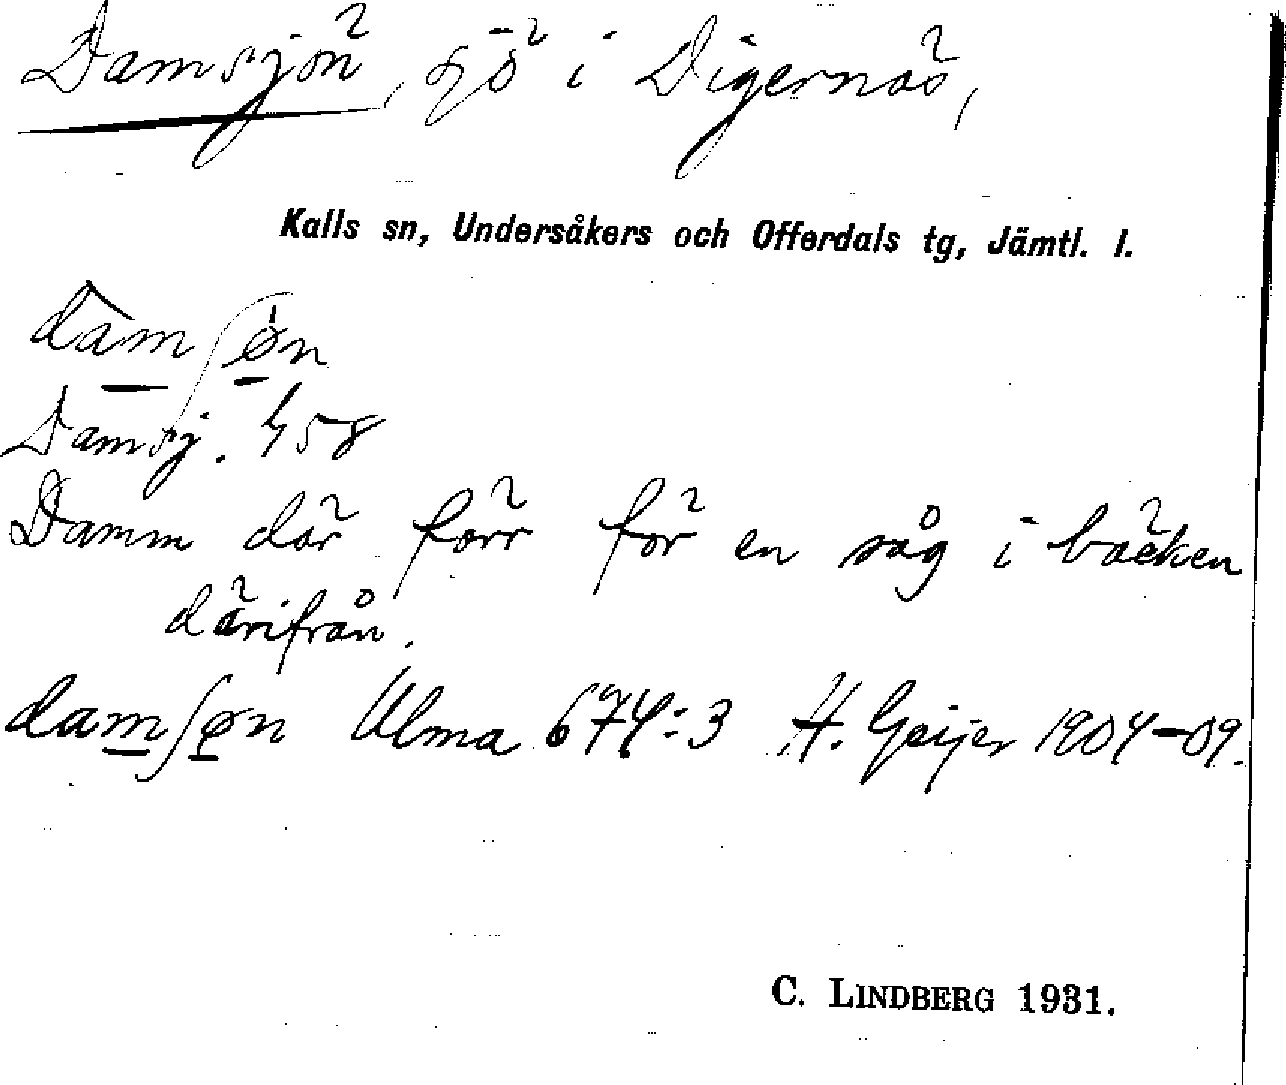 Damsjön, sjö i Digernäs,
Kalls sn, Undersåkers och Offerdals tg, Jämtl. l.
damʃøn
Damsj. 458
Damm där förr för en såg i bäcken
därifrån.
damʃøn Ulma 674:3 H. Geijer 1904-09.
C. LINDBERG 1931.